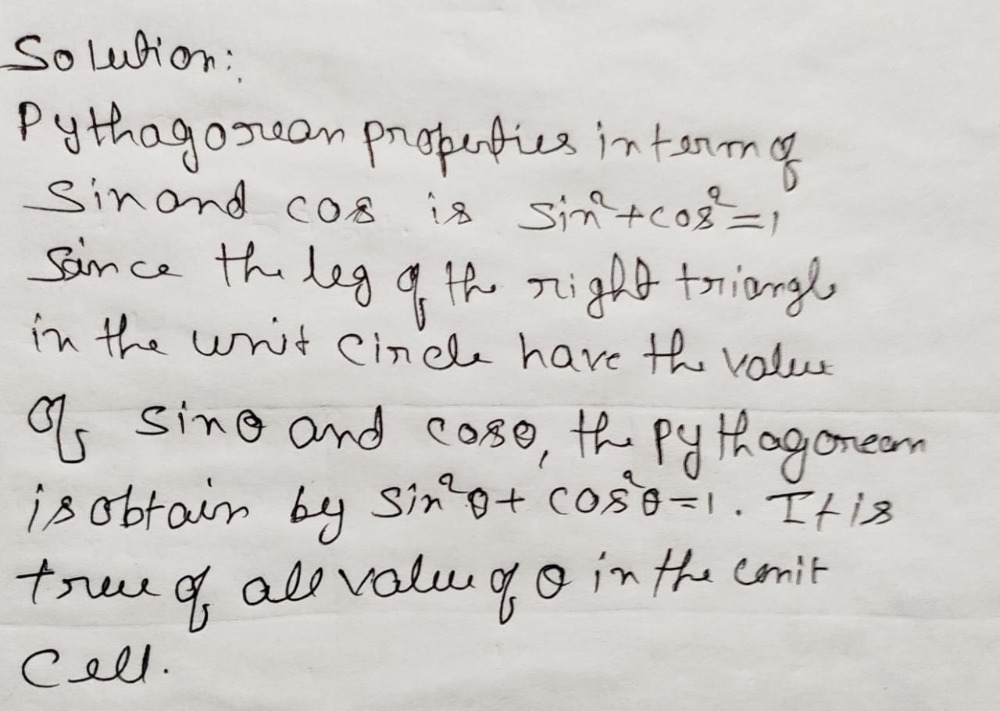 Solution:
Pythagorean properties in term of
Sin and cos is sin²+cos²=1
Since the leg of the right triangle
in the unit circle have the value
of sinθ and cosθ, the pythagorean
is obtain by sin²θ+ cos²θ=1. It is
true of all value of θ in the unit
Cell.